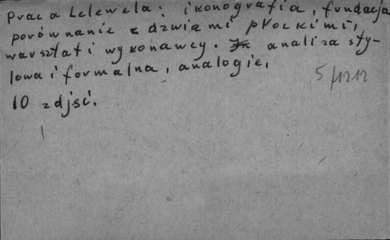 Praca Lelewela: ikonografia, fundacja
porównanie z drzwiami płockimi,
warsztat i wykonawcy. analiza sty-
lowa i formalna, analogie,
10 zdjęć.